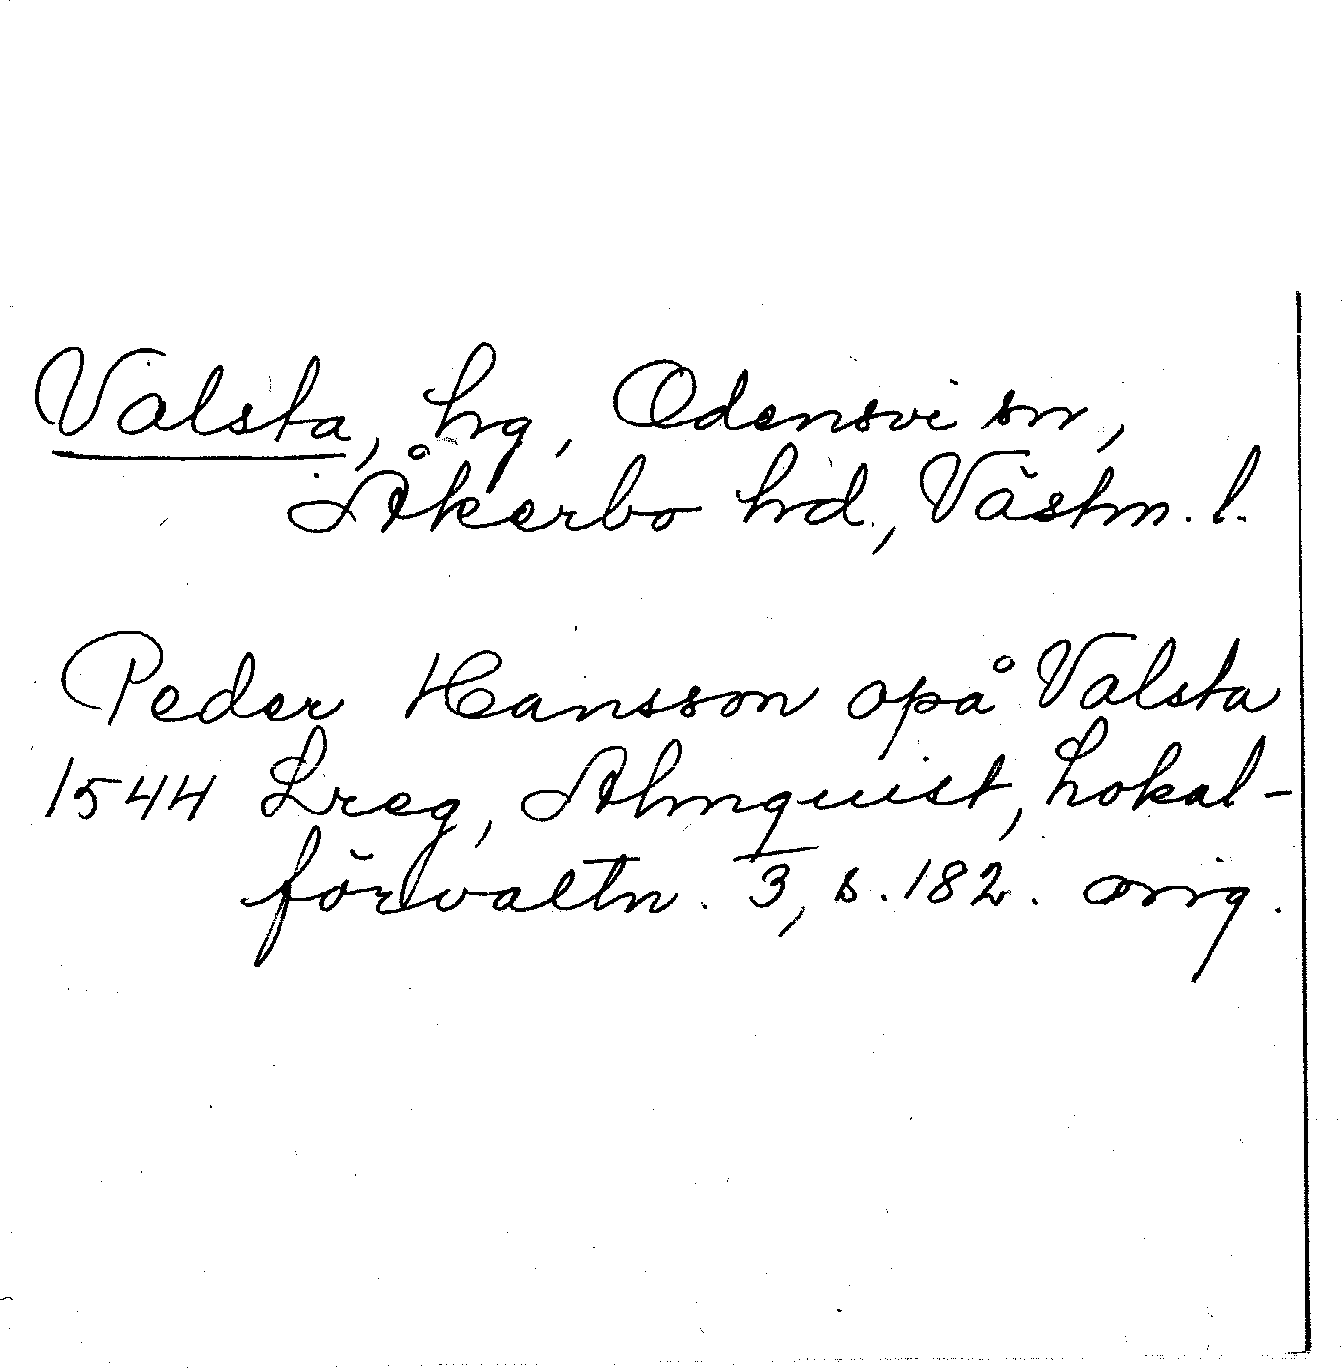 Valsta, hg, Odensvi sn,
Åkerbo hd., Västm. l.
Peder Hansson opå Valsta
1544 Lreg, Almquist, Lokal-
förvaltn. 3, s. 182. orig.